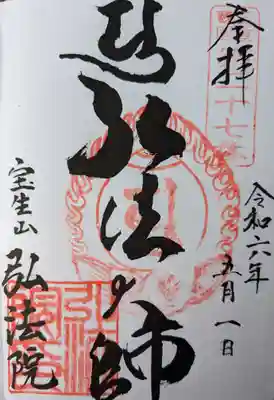 奉拝
令和六年
五月一日
弘法大師
宝生山
弘法院